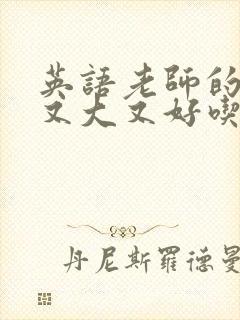 英語老師的
又大又好喫
丹尼斯羅德曼